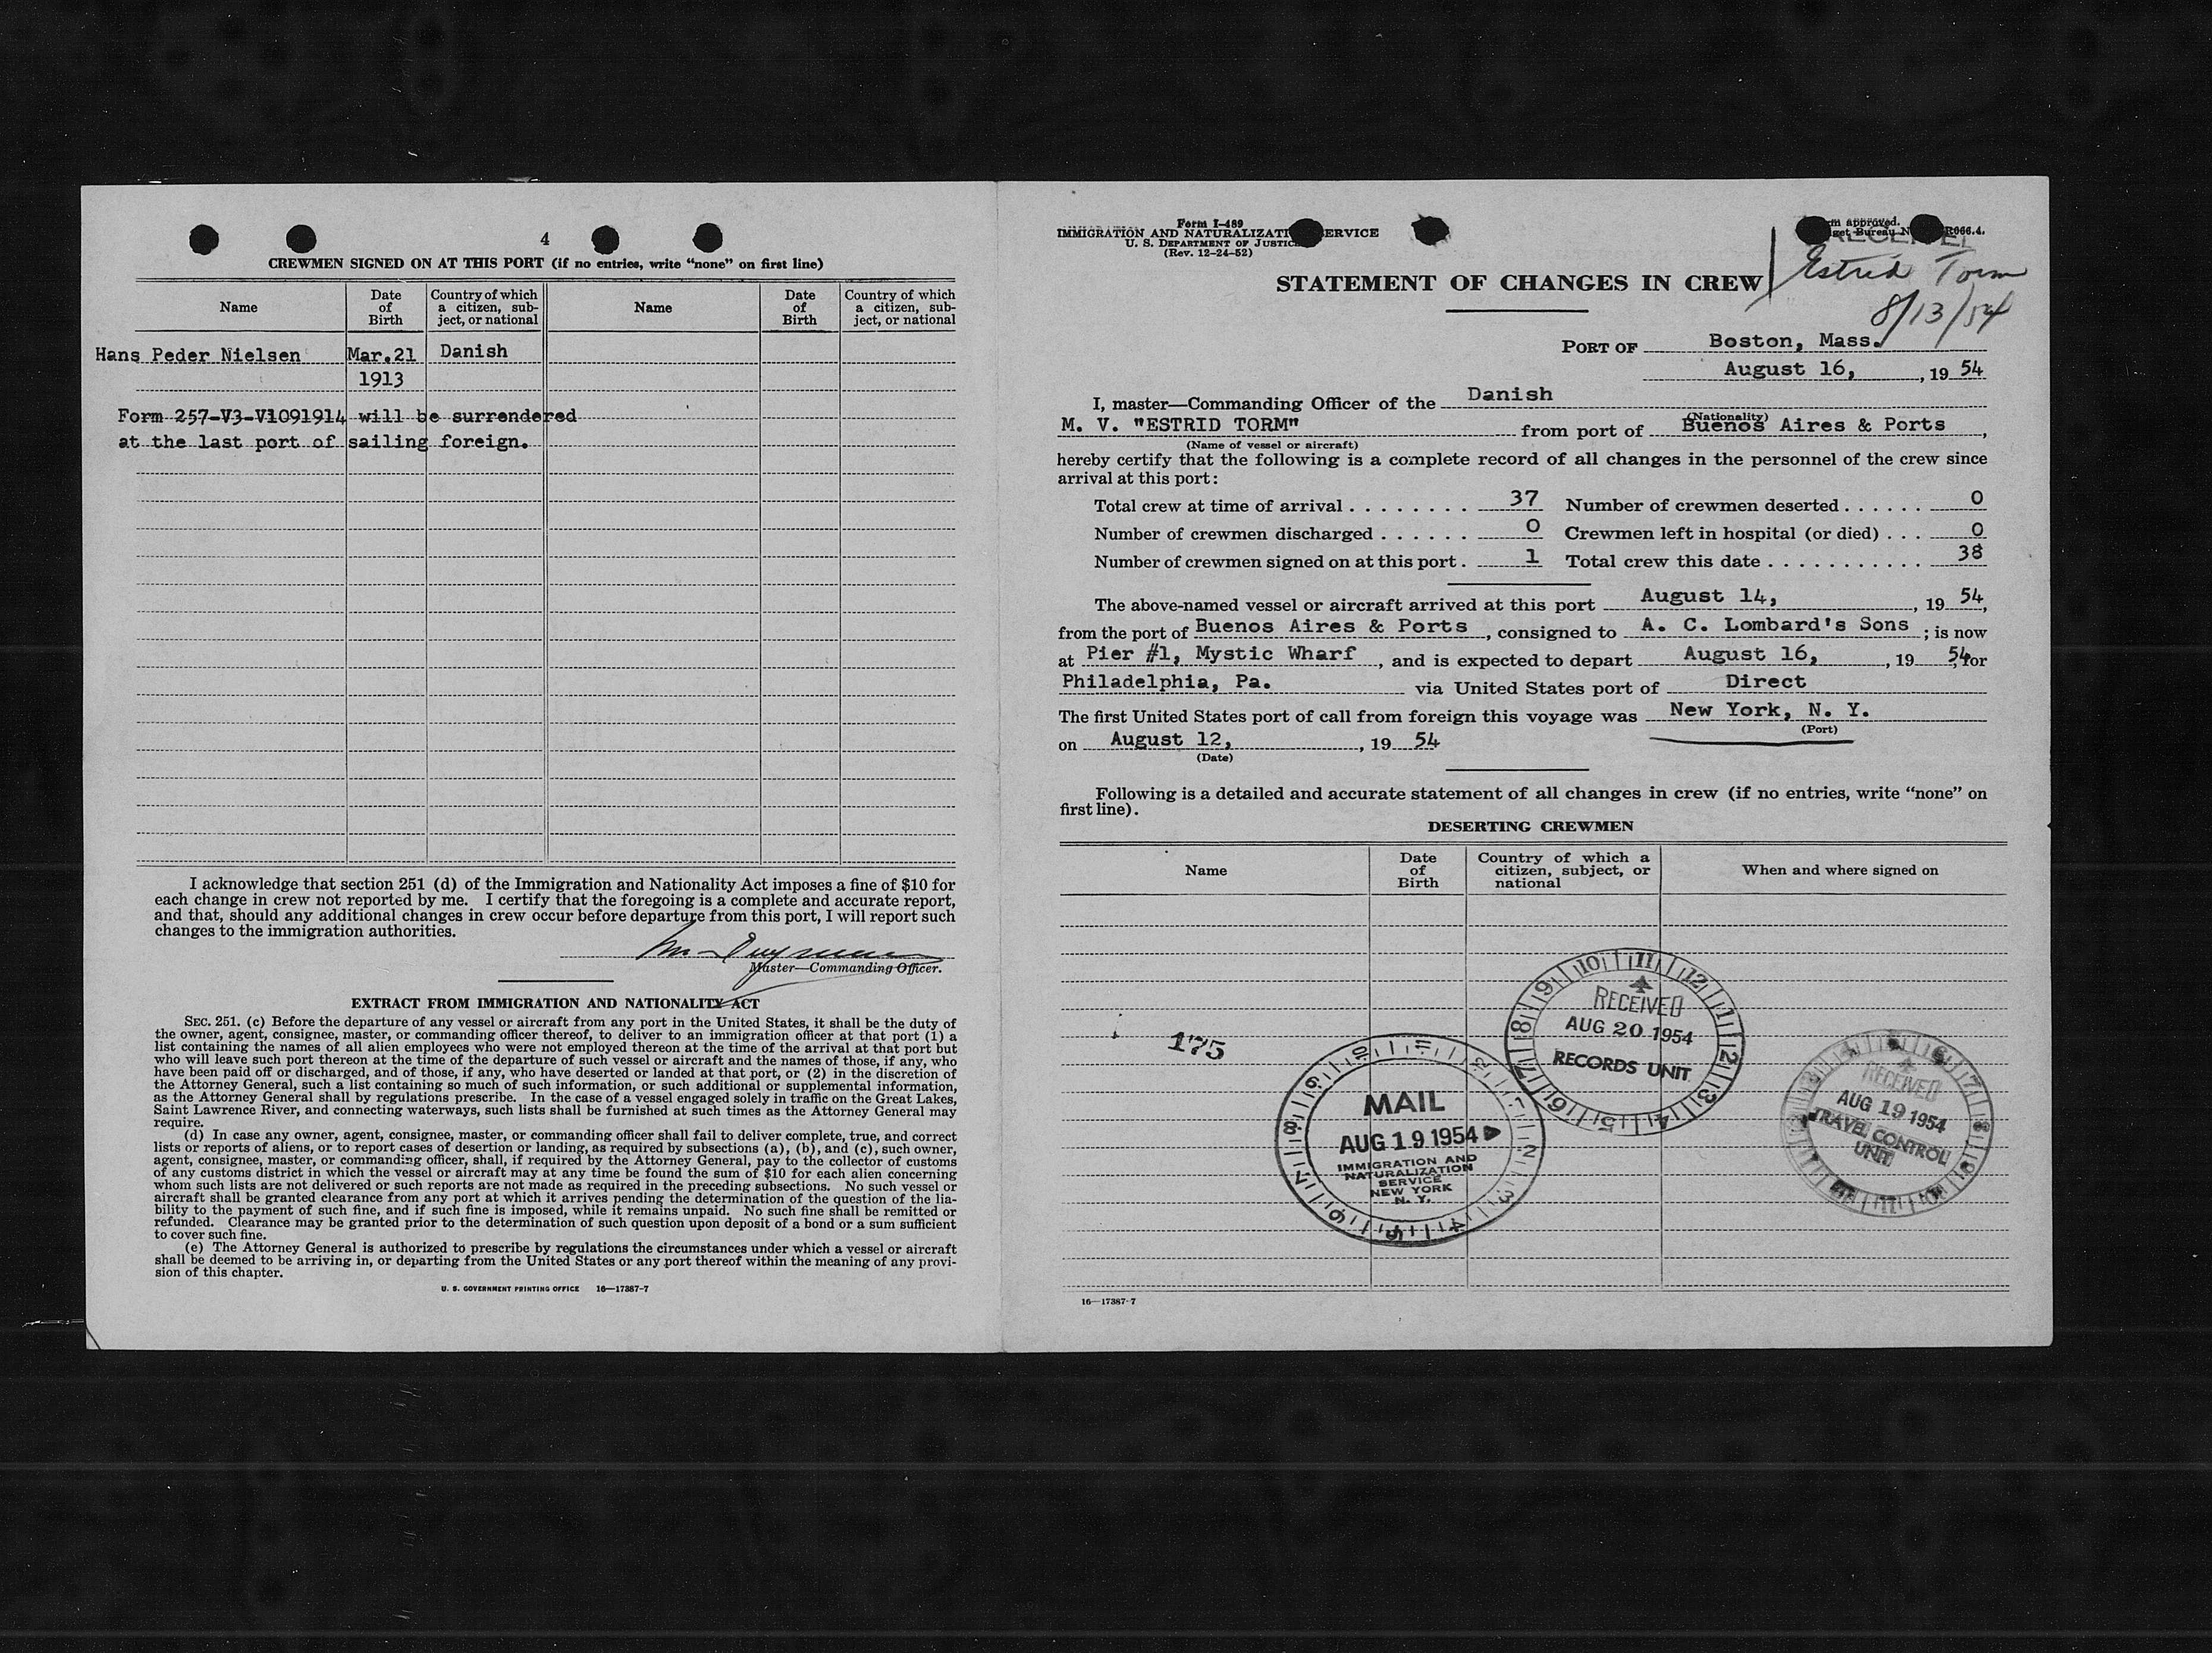 4
CREWMEN SIGNED ON AT THIS PORT (if no entries, write “none” on first line)
Name
Date of Birth
Country of which a citizen, subject, or national
Name
Date of Birth
Country of which a citizen, subject, or national
Hans Peder Nielsen Mar.21 Danish
1913
Form 257-V3-V1091914 will be surrendered
at the last port of sailing foreign.
I acknowledge that section 251 (d) of the Immigration and Nationality Act imposes a fine of $10 for
each change in crew not reported by me. I certify that the foregoing is a complete and accurate report,
and that, should any additional changes in crew occur before departure from this port, I will report such
changes to the immigration authorities.
Master—Commanding Officer.
EXTRACT FROM IMMIGRATION AND NATIONALITY ACT
SEC. 251. (c) Before the departure of any vessel or aircraft from any port in the United States, it shall be the duty of
the owner, agent, consignee, master, or commanding officer thereof, to deliver to an immigration officer at that port (1) a
list containing the names of all alien employees who were not employed thereon at the time of the arrival at that port but
who will leave such port thereon at the time of the departure of such vessel or aircraft and the names of those, if any, who
have been paid off or discharged, and of those, if any, who have deserted or landed at that port, or (2) in the discretion of
the Attorney General, such a list containing so much of such information, or such additional or supplemental information,
as the Attorney General shall by regulations prescribe. In the case of a vessel engaged solely in traffic on the Great Lakes,
Saint Lawrence River, and connecting waterways, such lists shall be furnished at such times as the Attorney General may
require.
(d) In case any owner, agent, consignee, master, or commanding officer shall fail to deliver complete, true, and correct
lists or reports of aliens, or to report cases of desertion or landing, as required by subsections (a), (b), and (c), such owner,
agent, consignee, master, or commanding officer, shall, if required by the Attorney General, pay to the collector of customs
of any customs district in which the vessel or aircraft may at any time be found the sum of $10 for each alien concerning
whom such lists are not delivered or such reports are not made as required in the preceding subsections. No such vessel or
aircraft shall be granted clearance from any port at which it arrives pending the determination of the question of the lia-
bility to the payment of such fine, and if such fine is imposed, while it remains unpaid. No such fine shall be remitted or
refunded. Clearance may be granted prior to the determination of such question upon deposit of a bond or a sum sufficient
to cover such fine.
(e) The Attorney General is authorized to prescribe by regulations the circumstances under which a vessel or aircraft
shall be deemed to be arriving in, or departing from the United States or any port thereof within the meaning of any provi-
sion of this chapter.
U. S. GOVERNMENT PRINTING OFFICE 16—17387-7
Form I-489
IMMIGRATION AND NATURALIZATI ERVICE
U. S. DEPARTMENT OF JUSTICE
(Rev. 12-24-52)
m approved.
get Bureau N R066.4.
RECEIVED
Estrid Torm
8/13/54
STATEMENT OF CHANGES IN CREW
PORT OF Boston, Mass.
August 16, , 19 54
I, master—Commanding Officer of the Danish
(Nationality)
M. V. "ESTRID TORM" from port of Buenos Aires & Ports ,
(Name of vessel or aircraft)
hereby certify that the following is a complete record of all changes in the personnel of the crew since
arrival at this port:
Total crew at time of arrival . . . . . . . . 37 Number of crewmen deserted . . . . . . 0
Number of crewmen discharged . . . . . . 0 Crewmen left in hospital (or died) . . . 0
Number of crewmen signed on at this port . 1 Total crew this date . . . . . . . . . . . 38
The above-named vessel or aircraft arrived at this port August 14, , 19 54,
from the port of Buenos Aires & Ports , consigned to A. C. Lombard's Sons ; is now
at Pier #1, Mystic Wharf , and is expected to depart August 16, , 19 54, for
Philadelphia, Pa. via United States port of Direct
The first United States port of call from foreign this voyage was New York, N. Y.
(Port)
on August 12, , 19 54
(Date)
Following is a detailed and accurate statement of all changes in crew (if no entries, write “none” on
first line).
DESERTING CREWMEN
Name
Date of Birth
Country of which a citizen, subject, or national
When and where signed on
175
RECEIVED
AUG 20 1954
RECORDS UNIT
MAIL
AUG 19 1954
IMMIGRATION AND
NATURALIZATION
SERVICE
NEW YORK
N. Y.
RECEIVED
AUG 19 1954
TRAVEL CONTROL
UNIT
16—17387-7